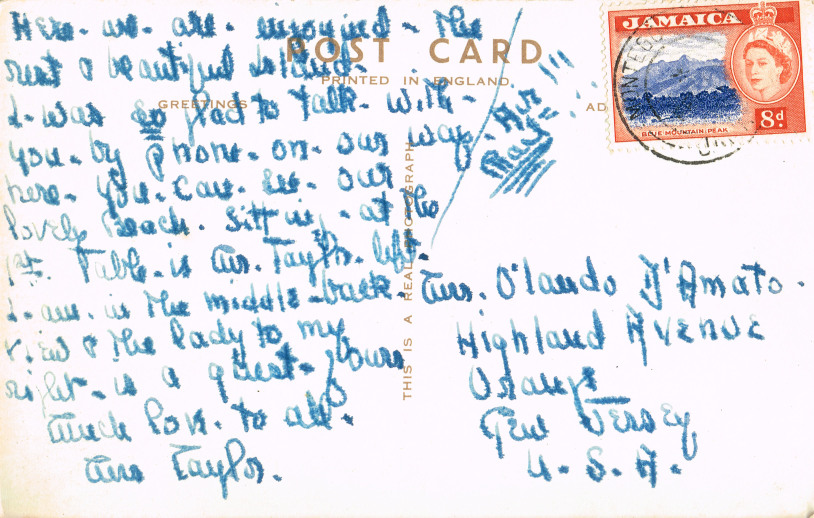 POST CARD
PRINTED IN ENGLAND
GREETINGS
AD
THIS IS A REAL PHOTOGRAPH
Here - we - are - enjoyind - the
rest & beautiful island
I - was so glad to talk - with -
you - by phone - on - our way
here - you - can - see - our
lovely Beach. Sitting - at the
1st. Table - is Mr. Taylor - left.
I - am - in the middle - back -
view & the lady to my
right - is a guest - yours
Much Love - to all -
Mrs Taylor.
Air
Mail
Mrs. O'lando D'Amato.
Highland Avenue
Orange
New Jersey
U. S. A.
JAMAICA
8d
BLUE MOUNTAIN PEAK
MONTEGO